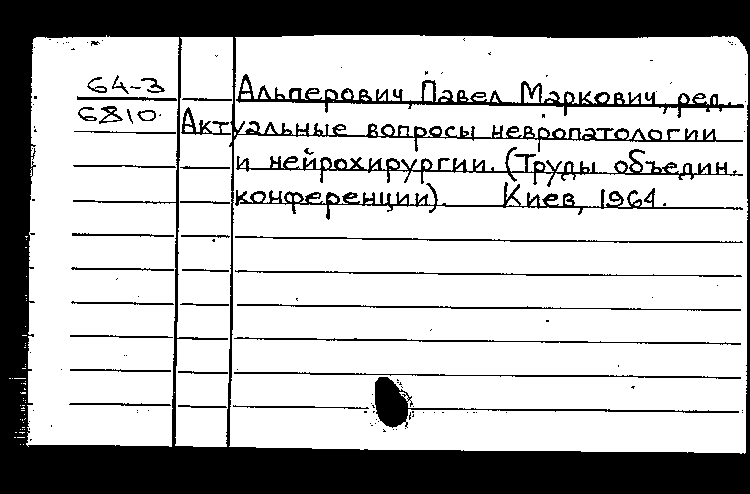 64-3 Альперович, Павел Маркович, ред.
6810 Актуальные вопросы невропатологии
и нейрохирургии. (Труды объедин.
конференции). Киев, 1964.